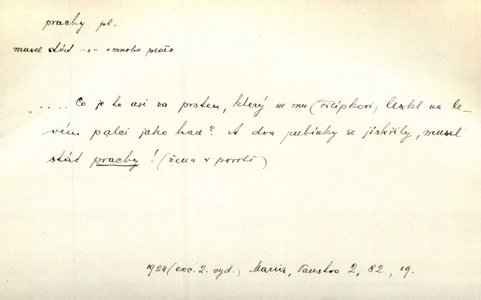 prachy pl.
musel stát -o- mnoho peněz
„.... Co je to asi za prsten, který se mu (Štípkovi) leskl na le-
vém palci jako had? A dva rubínky se jiskřily, musel
stát prachy! (žena v porotě)
1924 (exc. 2. vyd.) Maria, Panstvo 2, 82, 19.